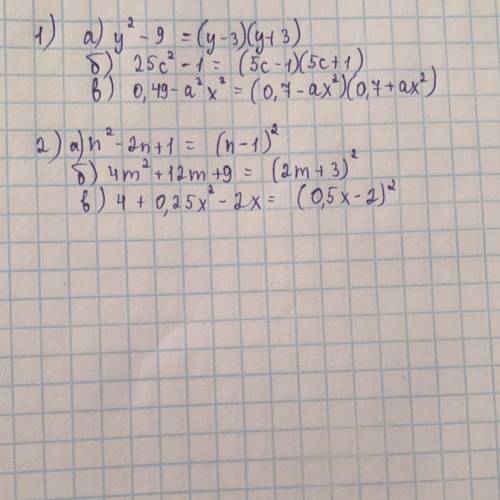 1) а) y² - 9 = (y-3)(y+3)
б) 25c² - 1 = (5c-1)(5c+1)
в) 0,49 - a²x² = (0,7 - ax²)(0,7 + ax²)
2) а) n² - 2n + 1 = (n-1)²
б) 4m² + 12m + 9 = (2m + 3)²
в) 4 + 0,25x² - 2x = (0,5x - 2)²